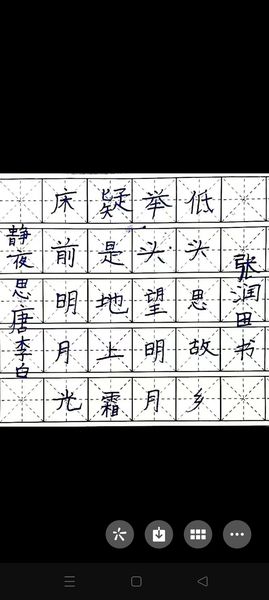 静夜思唐李白
床前明月光
疑是地上霜
举头望明月
低头思故乡
张润田书